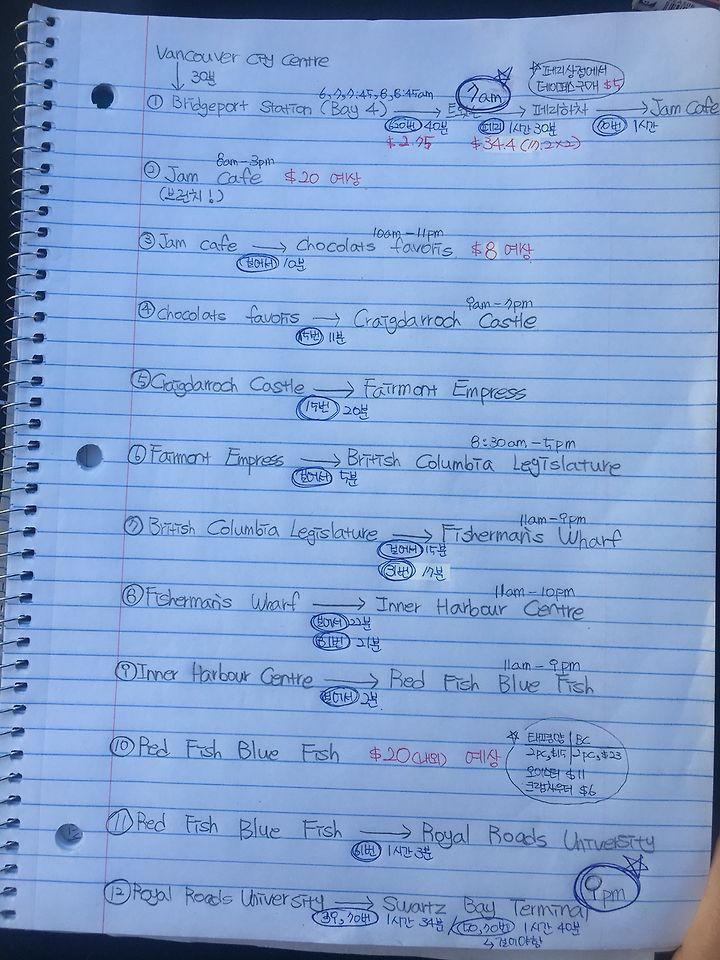 Vancouver City Centre
30분
☆ 페리상점에서
데이패스구매 $5
6, 7, 7:45, 8, 8:45am
7am
① Bridgeport Station (Bay 4) → → 페리하차 → Jam Cafe
620번 40분 페리 1시간 30분 70번 1시간
$2.75 $34.4 (17.2×2)
8am - 3pm
② Jam Cafe $20 예상
(브런치!)
10am - 11pm
③ Jam cafe → Chocolats favoris $8 예상
걸어서 10분
9am - 7pm
④ Chocolats favoris → Craigdarroch Castle
15번 11분
⑤ Craigdarroch Castle → Fairmont Empress
15번 20분
8:30am - 5pm
⑥ Fairmont Empress → British Columbia Legislature
걸어서 5분
11am - 9pm
⑦ British Columbia Legislature → Fisherman's Wharf
걸어서 15분
31번 17분
11am - 10pm
⑧ Fisherman's Wharf → Inner Harbour Centre
걸어서 22분
21분
11am - 9pm
⑨ Inner Harbour Centre → Red Fish Blue Fish
걸어서 2분
⑩ Red Fish Blue Fish $20 (내외) 예상
☆ 태평양 | BC
2pc, $15 | 2pc, $23
오이스터 $11
크램차우더 $6
⑪ Red Fish Blue Fish → Royal Roads University
61번 1시간 3분
9pm
⑫ Royal Roads University → Swartz Bay Terminal
39, 70번 1시간 34분 / 50, 70번 1시간 40분
↳ 걸어야함